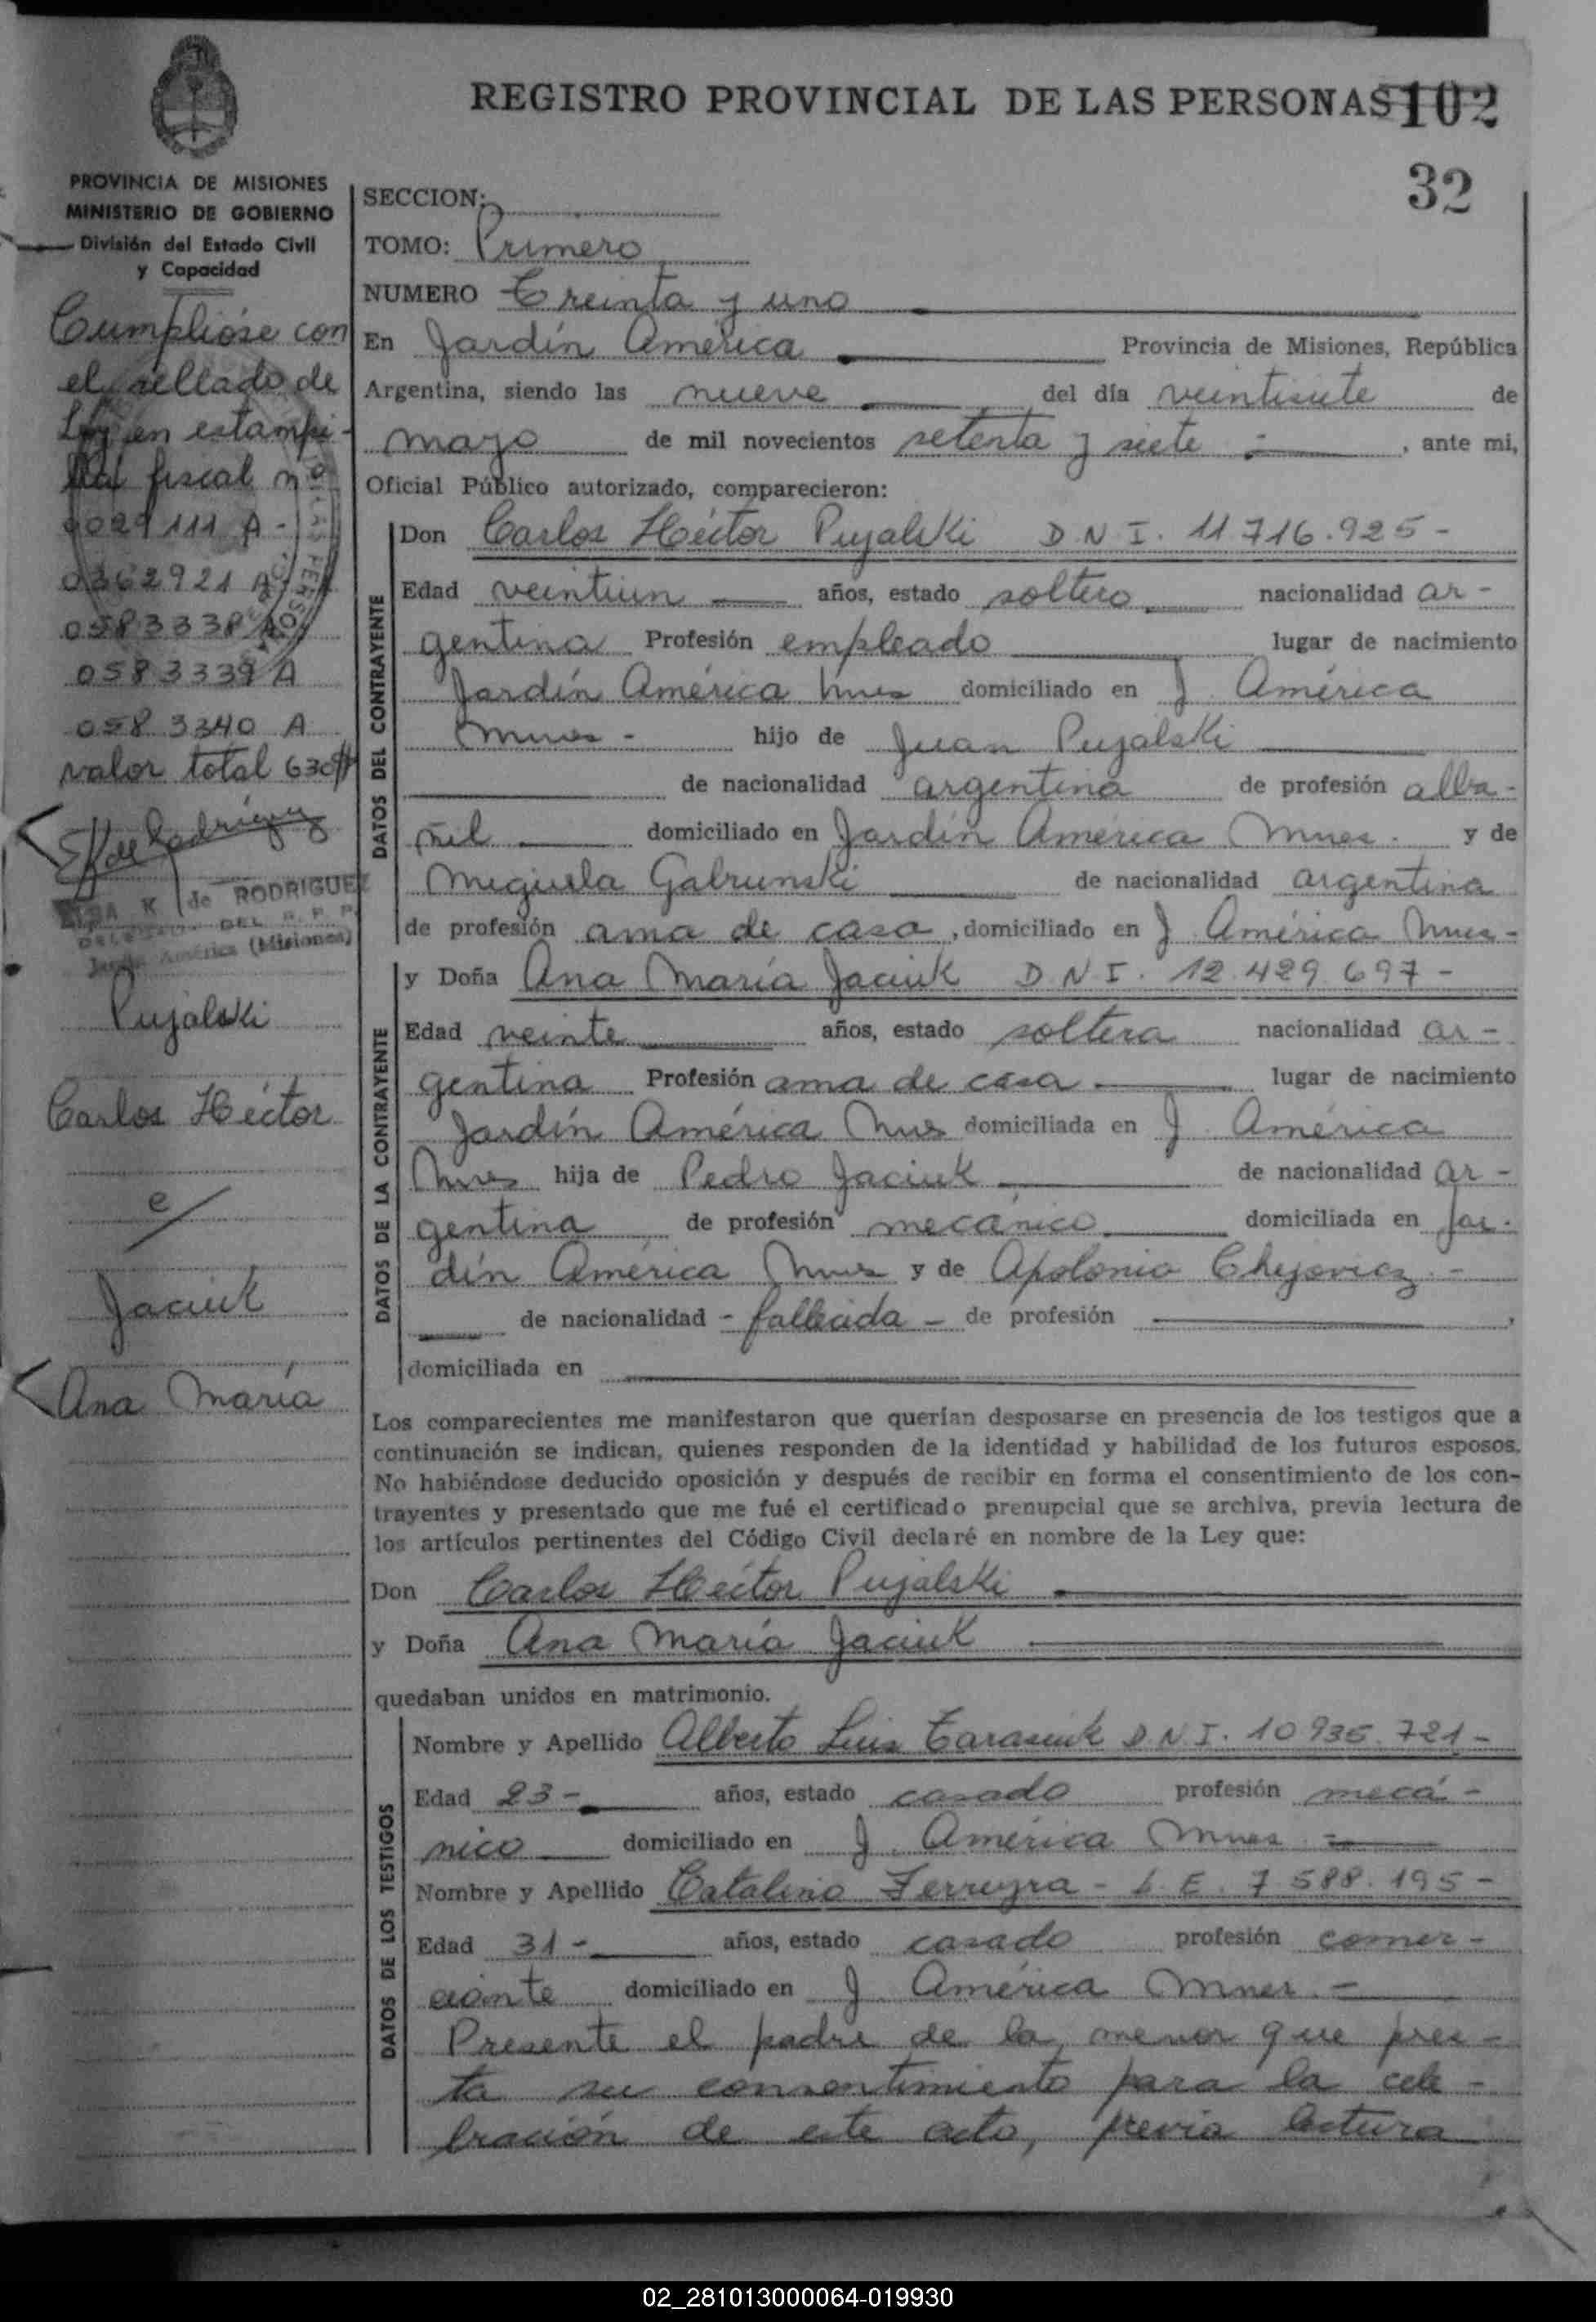 REGISTRO PROVINCIAL DE LAS PERSONAS 102
32
PROVINCIA DE MISIONES
MINISTERIO DE GOBIERNO
División del Estado Civil
y Capacidad
Cumplióse con
el sellado de
Ley en estampi-
lla fiscal nº
0029111 A-
0362921 A
0583338 A
0583339 A
0583340 A
valor total 630$
de RODRIGUEZ
DEL R. P. P.
Jardín América (Misiones)
Pujalski
Carlos Héctor
e/
Jaciuk
Ana María
SECCION:
TOMO: Primero
NUMERO Treinta y uno
En Jardín América Provincia de Misiones, República
Argentina, siendo las nueve del día veintisiete de
mayo de mil novecientos setenta y siete , ante mi,
Oficial Público autorizado, comparecieron:
DATOS DEL CONTRAYENTE
Don Carlos Héctor Pujalski D.N.I. 11.716.925-
Edad veintiun años, estado soltero nacionalidad ar-
gentina Profesión empleado lugar de nacimiento
Jardín América Mnes domiciliado en J. América
Mnes - hijo de Juan Pujalski
de nacionalidad argentina de profesión alba-
ñil domiciliado en Jardín América Mnes. y de
Miguela Gabrunski de nacionalidad argentina
de profesión ama de casa , domiciliado en J América Mnes-
DATOS DE LA CONTRAYENTE
y Doña Ana María Jaciuk D.N.I. 12.429.697-
Edad veinte años, estado soltera nacionalidad ar-
gentina Profesión ama de casa lugar de nacimiento
Jardín América Mnes domiciliada en J. América
Mnes hija de Pedro Jaciuk de nacionalidad ar-
gentina de profesión mecánico domiciliada en Jar-
dín América Mnes y de Apolonia Chejovicz -
de nacionalidad - fallecida - de profesión ,
domiciliada en
Los comparecientes me manifestaron que querían desposarse en presencia de los testigos que a
continuación se indican, quienes responden de la identidad y habilidad de los futuros esposos.
No habiéndose deducido oposición y después de recibir en forma el consentimiento de los con-
trayentes y presentado que me fué el certificado prenupcial que se archiva, previa lectura de
los artículos pertinentes del Código Civil declaré en nombre de la Ley que:
Don Carlos Héctor Pujalski
y Doña Ana María Jaciuk
quedaban unidos en matrimonio.
DATOS DE LOS TESTIGOS
Nombre y Apellido Alberto Luis Tarasiuk D.N.I. 10.935.721-
Edad 23- años, estado casado profesión mecá-
nico domiciliado en J. América Mnes
Nombre y Apellido Catalino Ferreyra - L.E. 7.588.195-
Edad 31- años, estado casado profesión comer-
ciante domiciliado en J. América Mnes. -
Presente el padre de la menor que pres-
ta su consentimiento para la cele-
bración de este acto, previa lectura
02_281013000064-019930